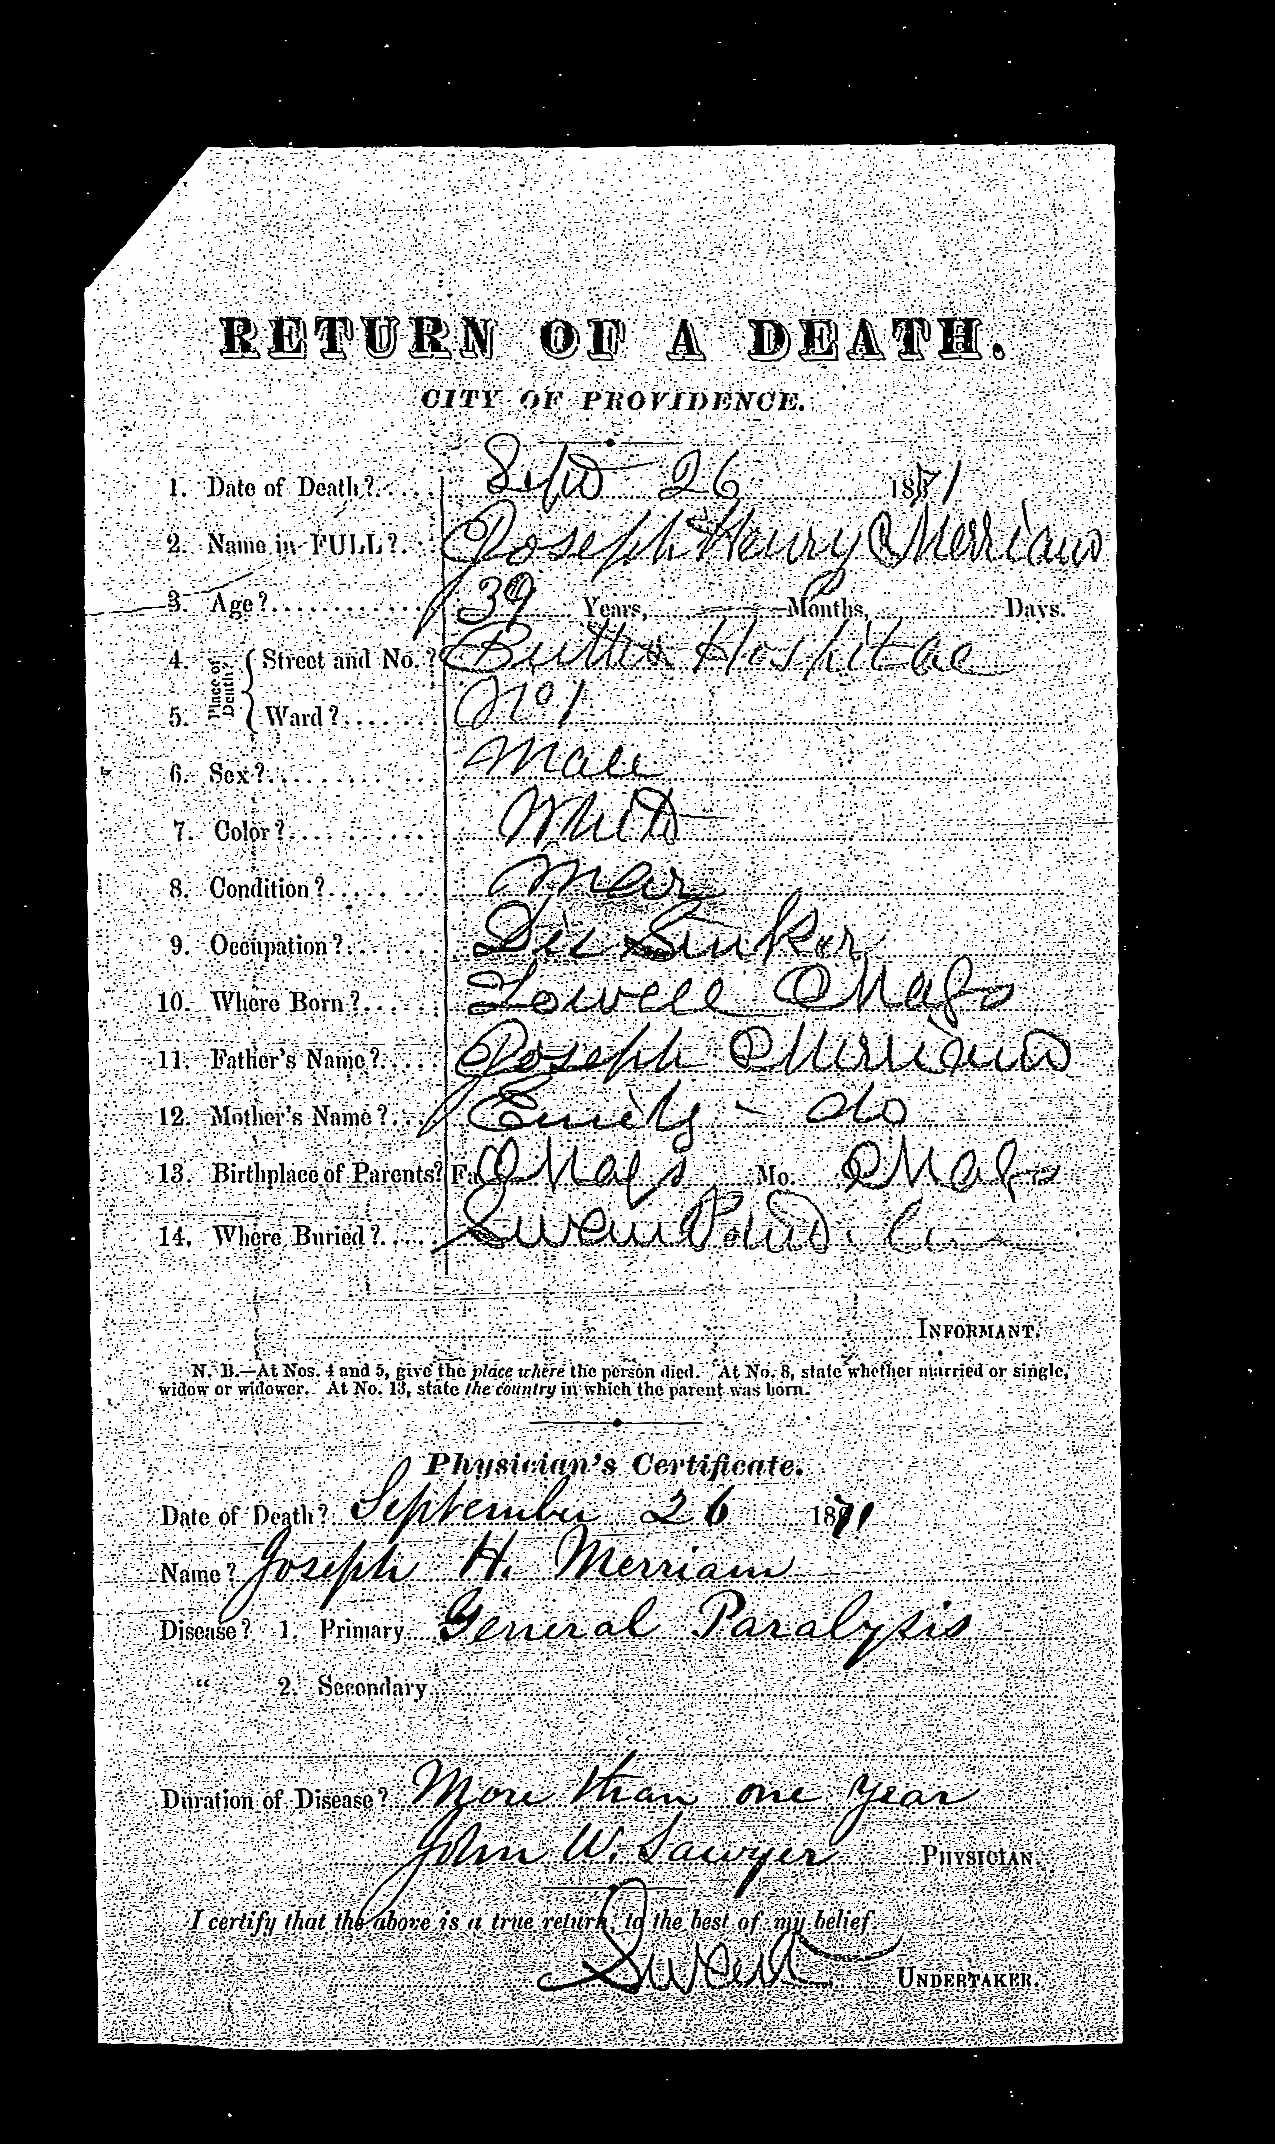 RETURN OF A DEATH.
CITY OF PROVIDENCE.
1. Date of Death? Sept 26 1871
2. Name in FULL? Joseph Henry Merriam
3. Age? 39 Years, Months, Days.
4. Place of Death? Street and No.? Butler Hospital
5. Ward? No 1
6. Sex? Male
7. Color? White
8. Condition? Mar
9. Occupation? Die Sinker
10. Where Born? Lowell Mass
11. Father's Name? Joseph Merriam
12. Mother's Name? Emily - do
13. Birthplace of Parents? Fa. Mass Mo. Mass
14. Where Buried? Swan Point
INFORMANT.
N. B.—At Nos. 4 and 5, give the place where the person died. At No. 8, state whether married or single,
widow or widower. At No. 13, state the country in which the parent was born.
Physician's Certificate.
Date of Death? September 26 1871
Name? Joseph H. Merriam
Disease? 1. Primary General Paralysis
" 2. Secondary
Duration of Disease? More than one year
John W. Sawyer PHYSICIAN.
I certify that the above is a true return, to the best of my belief.
UNDERTAKER.